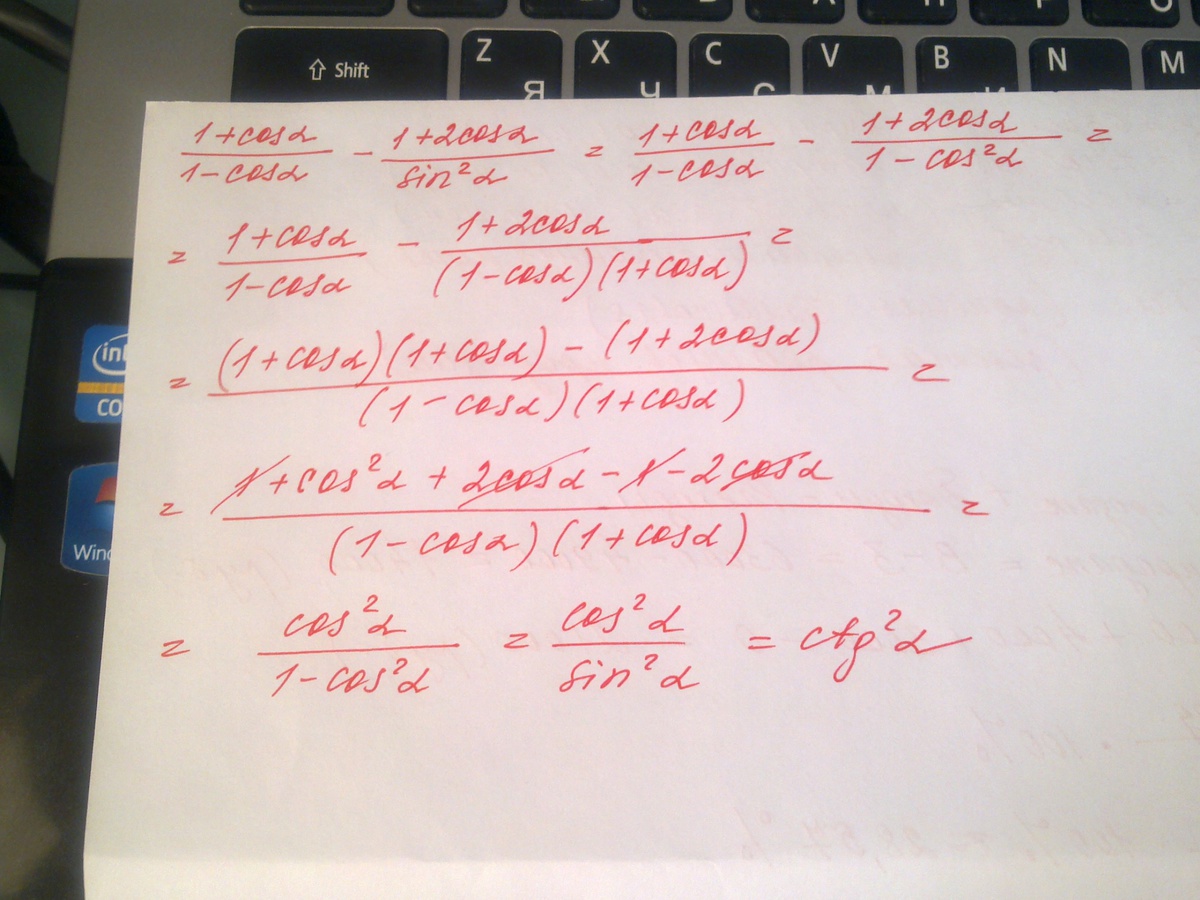 ⇧ Shift Z X C V B N M
Я Ч С М И
(1+cosα)/(1-cosα) - (1+2cosα)/(sin²α) = (1+cosα)/(1-cosα) - (1+2cosα)/(1-cos²α) =
= (1+cosα)/(1-cosα) - (1+2cosα)/((1-cosα)(1+cosα)) =
= ((1+cosα)(1+cosα) - (1+2cosα))/((1-cosα)(1+cosα)) =
= (1+cos²α + 2cosα - 1 - 2cosα)/((1-cosα)(1+cosα)) =
= cos²α/(1-cos²α) = cos²α/sin²α = ctg²α
int
CO
Wind